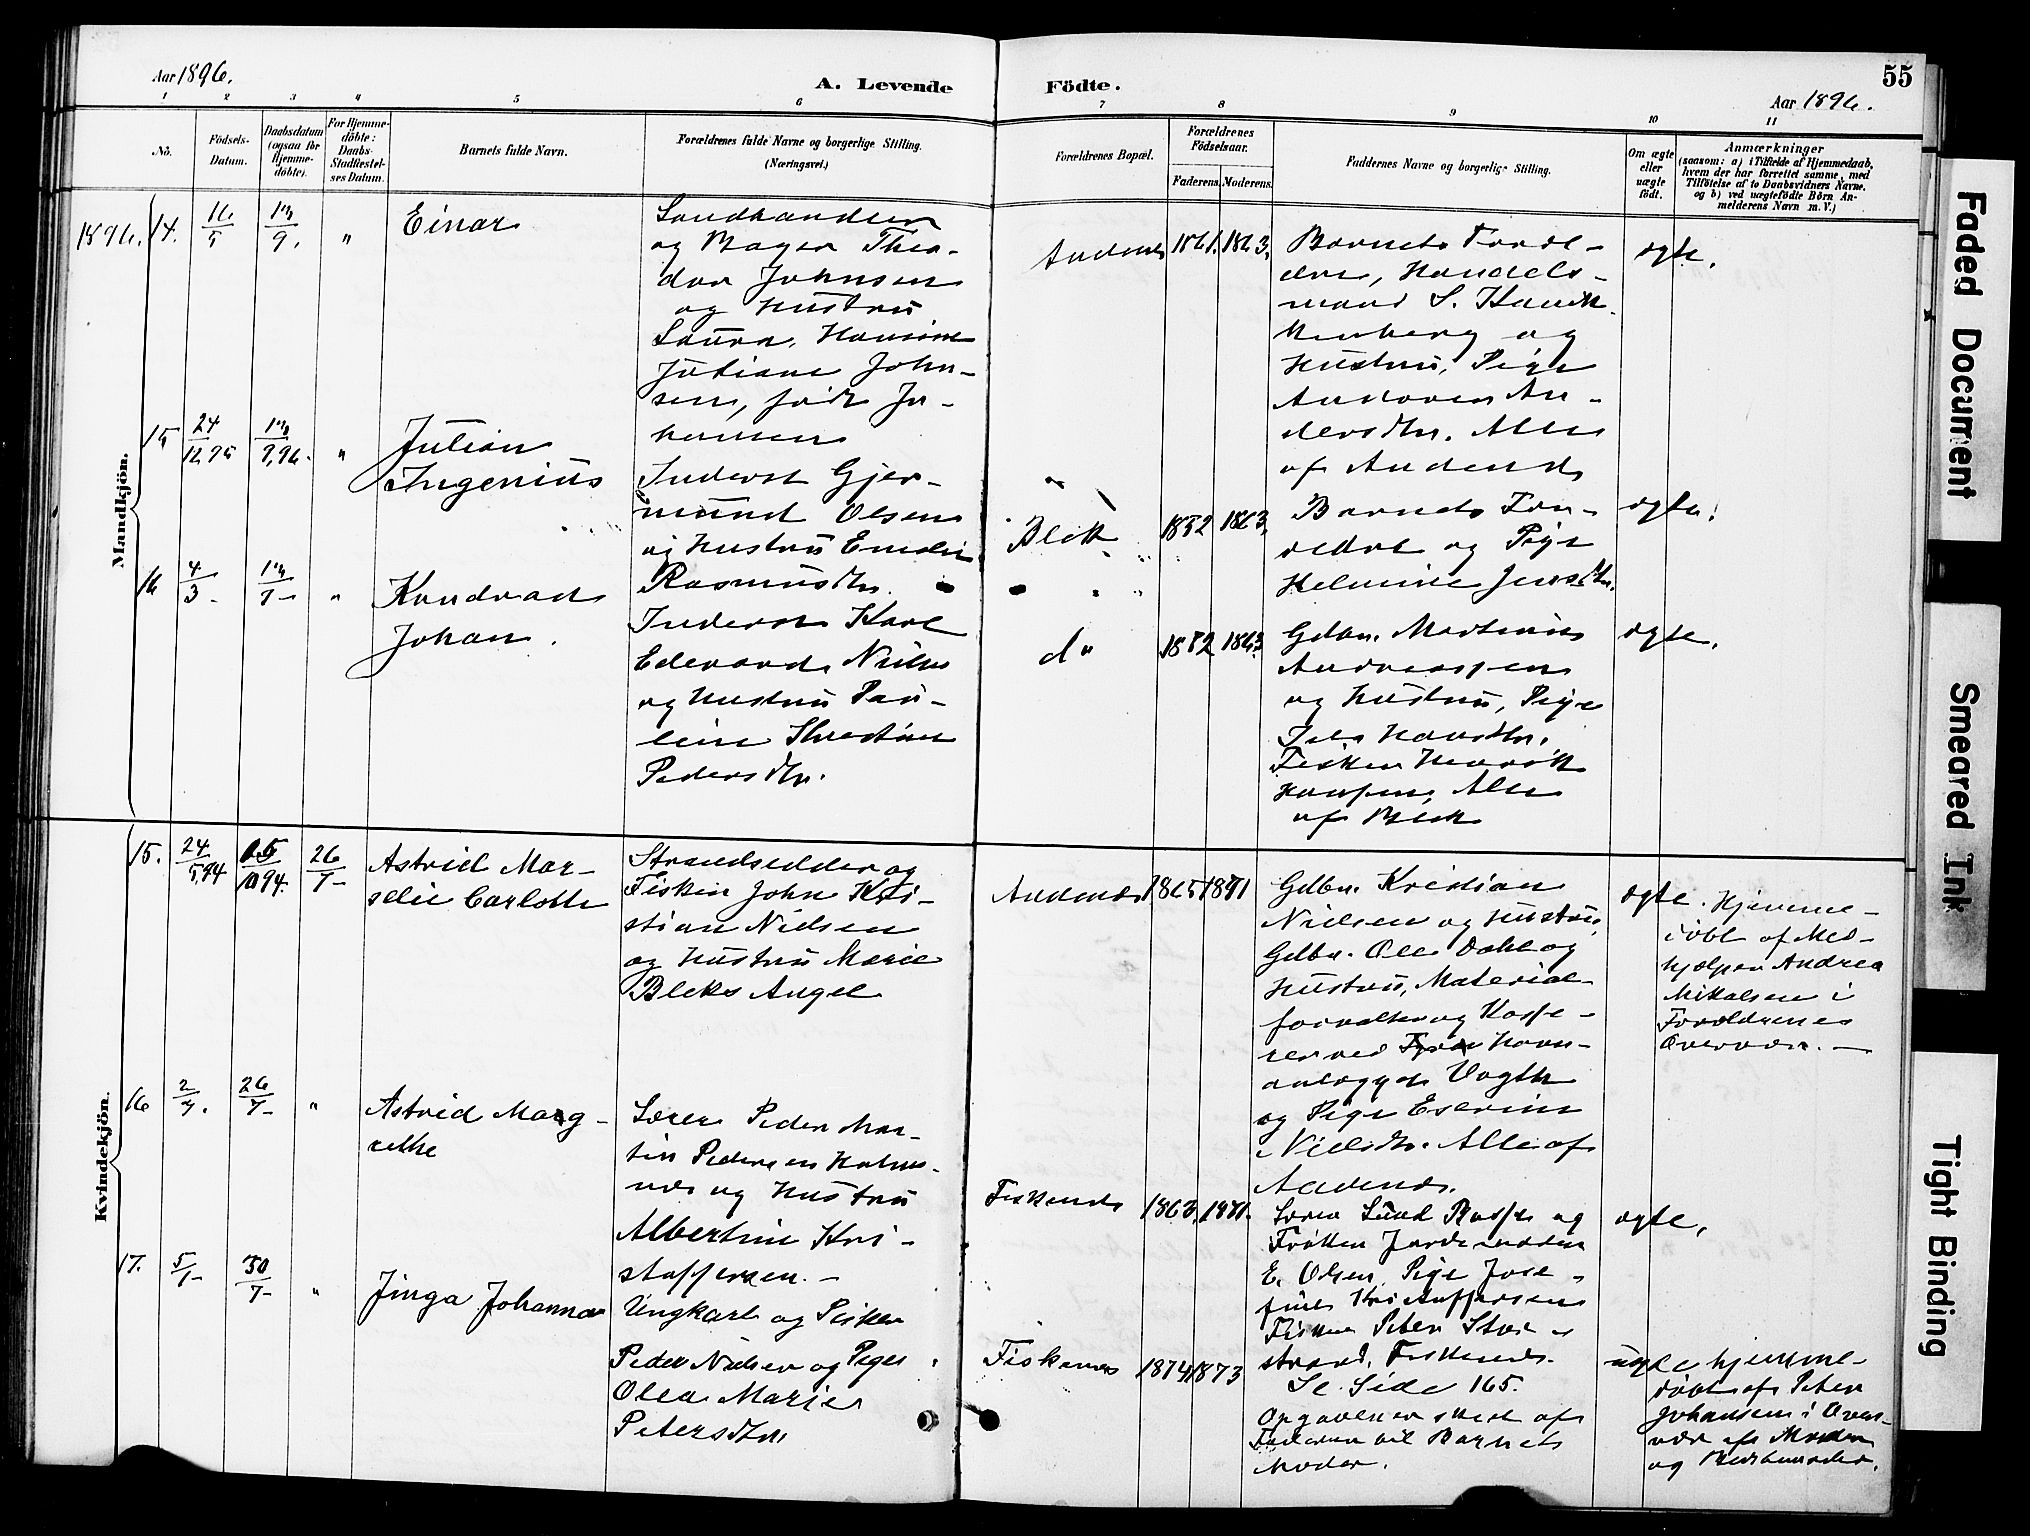 Aar 1896.
A. Levende
Födte.
55
Aar 1896.
1 2 3 4 5 6 7 8 9 10 11
No.
Födsels-
Datum.
Daabsdatum
(ogsaa for
Hjemme-
döbte).
For Hjemme-
döbte:
Daabs-
Stadfæstel-
ses Datum.
Barnets fulde Navn.
Forældrenes fulde Navne og borgerlige Stilling.
(Næringsvei.)
Forældrenes Bopæl.
Forældrenes
Födselsaar.
Faderens.
Moderens.
Faddernes Navne og borgerlige Stilling.
Om ægte
eller
uægte
födt.
Anmærkninger
(saasom: a) i Tilfælde af Hjemmedaab,
hvem der har forrettet samme, med
Tilföielse af to Daabsvidners Navne,
og b) ved uægtefödte Börn An-
melderens Navn m. V.)
Mandkjön.
1896. 14.
"
Einar
Landhandler
og Bager Theo-
dor Johnsen
og Hustru
Laura Hansine
Juliane John-
sen, født Jo-
hansen
Andenes
1861. 1863.
Barnets Foræl-
dre, Handels-
mand S.
og
Hustru, Pige
An-
dersdtr. Alle
af Andenes
ægte.
15
24/12,95
"
Julian
Ingenius
Inderst Gjer-
mund Olsen
og Hustru Emelie
Rasmusdtr.
Bleik
1852 1863.
Barnets For-
ældre og Pige
Helmine Jensdtr.
ægte.
16
4/3
"
Kondrad
Johan.
Inderst Karl
Edevard Nilsen
og Hustru Pau-
line Kristine
Pedersdtr.
d"
1882 1863.
Gdbr. Martinus
Andreassen
og Hustru, Pige
Hansdtr.
Fisker Henrik
Hansen, Alle
af Bleik
ægte.
Kvindekjön.
15.
24/5,94
26/7
Astrid Mar-
selie Carlotte
Strandsidder og
Fisker John Kri-
stian Nielsen
og Hustru Marie
Bleks Angel
Andenes
1865 1871
Gdbr. Kristian
Nielsen og Hustru,
Gdbr. Ole Dahl og
Hustru, Material-
forvalter og Kasse-
rer ved Havn-
anlægget Vogth
og Pige Eserine
Nielsdtr. Alle af
Andenes.
ægte.
Hjemme-
døbt af Med-
hjelper Andrea
Mikalsen i
Forældrenes
Overvær. —
16
2/7.
26/7
"
Astrid Marg-
rethe
Lærer Peder Mar-
tin Pedersen
og Hustru
Albertine Kri-
stoffersen. -
Fiskenes
1863. 1871.
Lærer Lund Rasse og
Frøken
E. Olsen, Pige Jose-
fine Kristoffersen
Fisker Peter Stor-
strand, Fiskenes.
ægte,
17.
5/1
30/7
"
Jinga Johanna
Ungkarl og Fisker
Peder Nielsen og Pige
Olea Marie
Petersdtr.
Fiskenes
1874 1873
Se Side 165.
Opgaven er skeet af
Faderen til Barnets
Moder.
uægte
hjemme-
døbt af Peter
Johansen i Over-
vær af Moder
og Bedstemoder.
Faded Document
Smeared Ink
Tight Binding